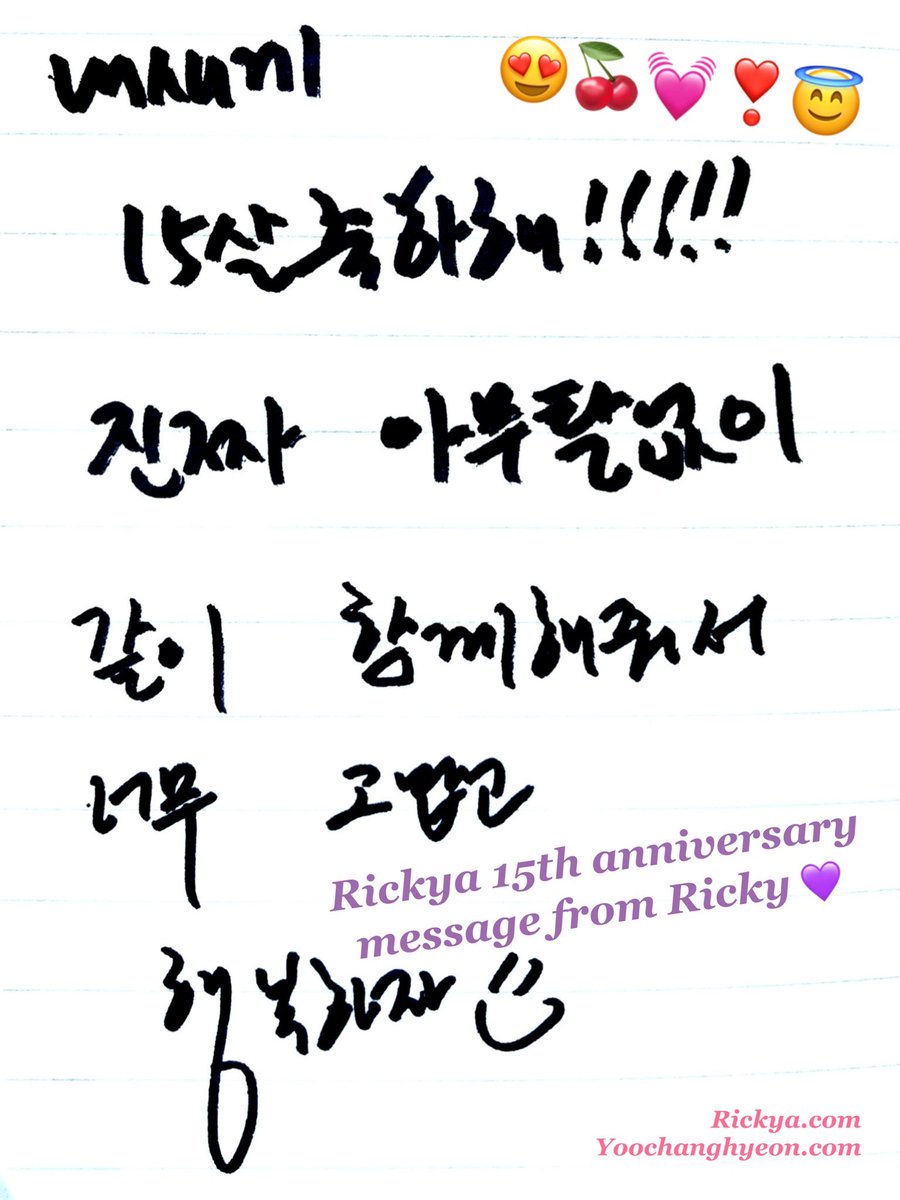 내새끼
15살축하해!!!!!
진짜 아무탈없이
같이 함께해줘서
너무 고맙고
Rickya 15th anniversary
message from Ricky 💜
행복하자
Rickya.com
Yoochanghyeon.com